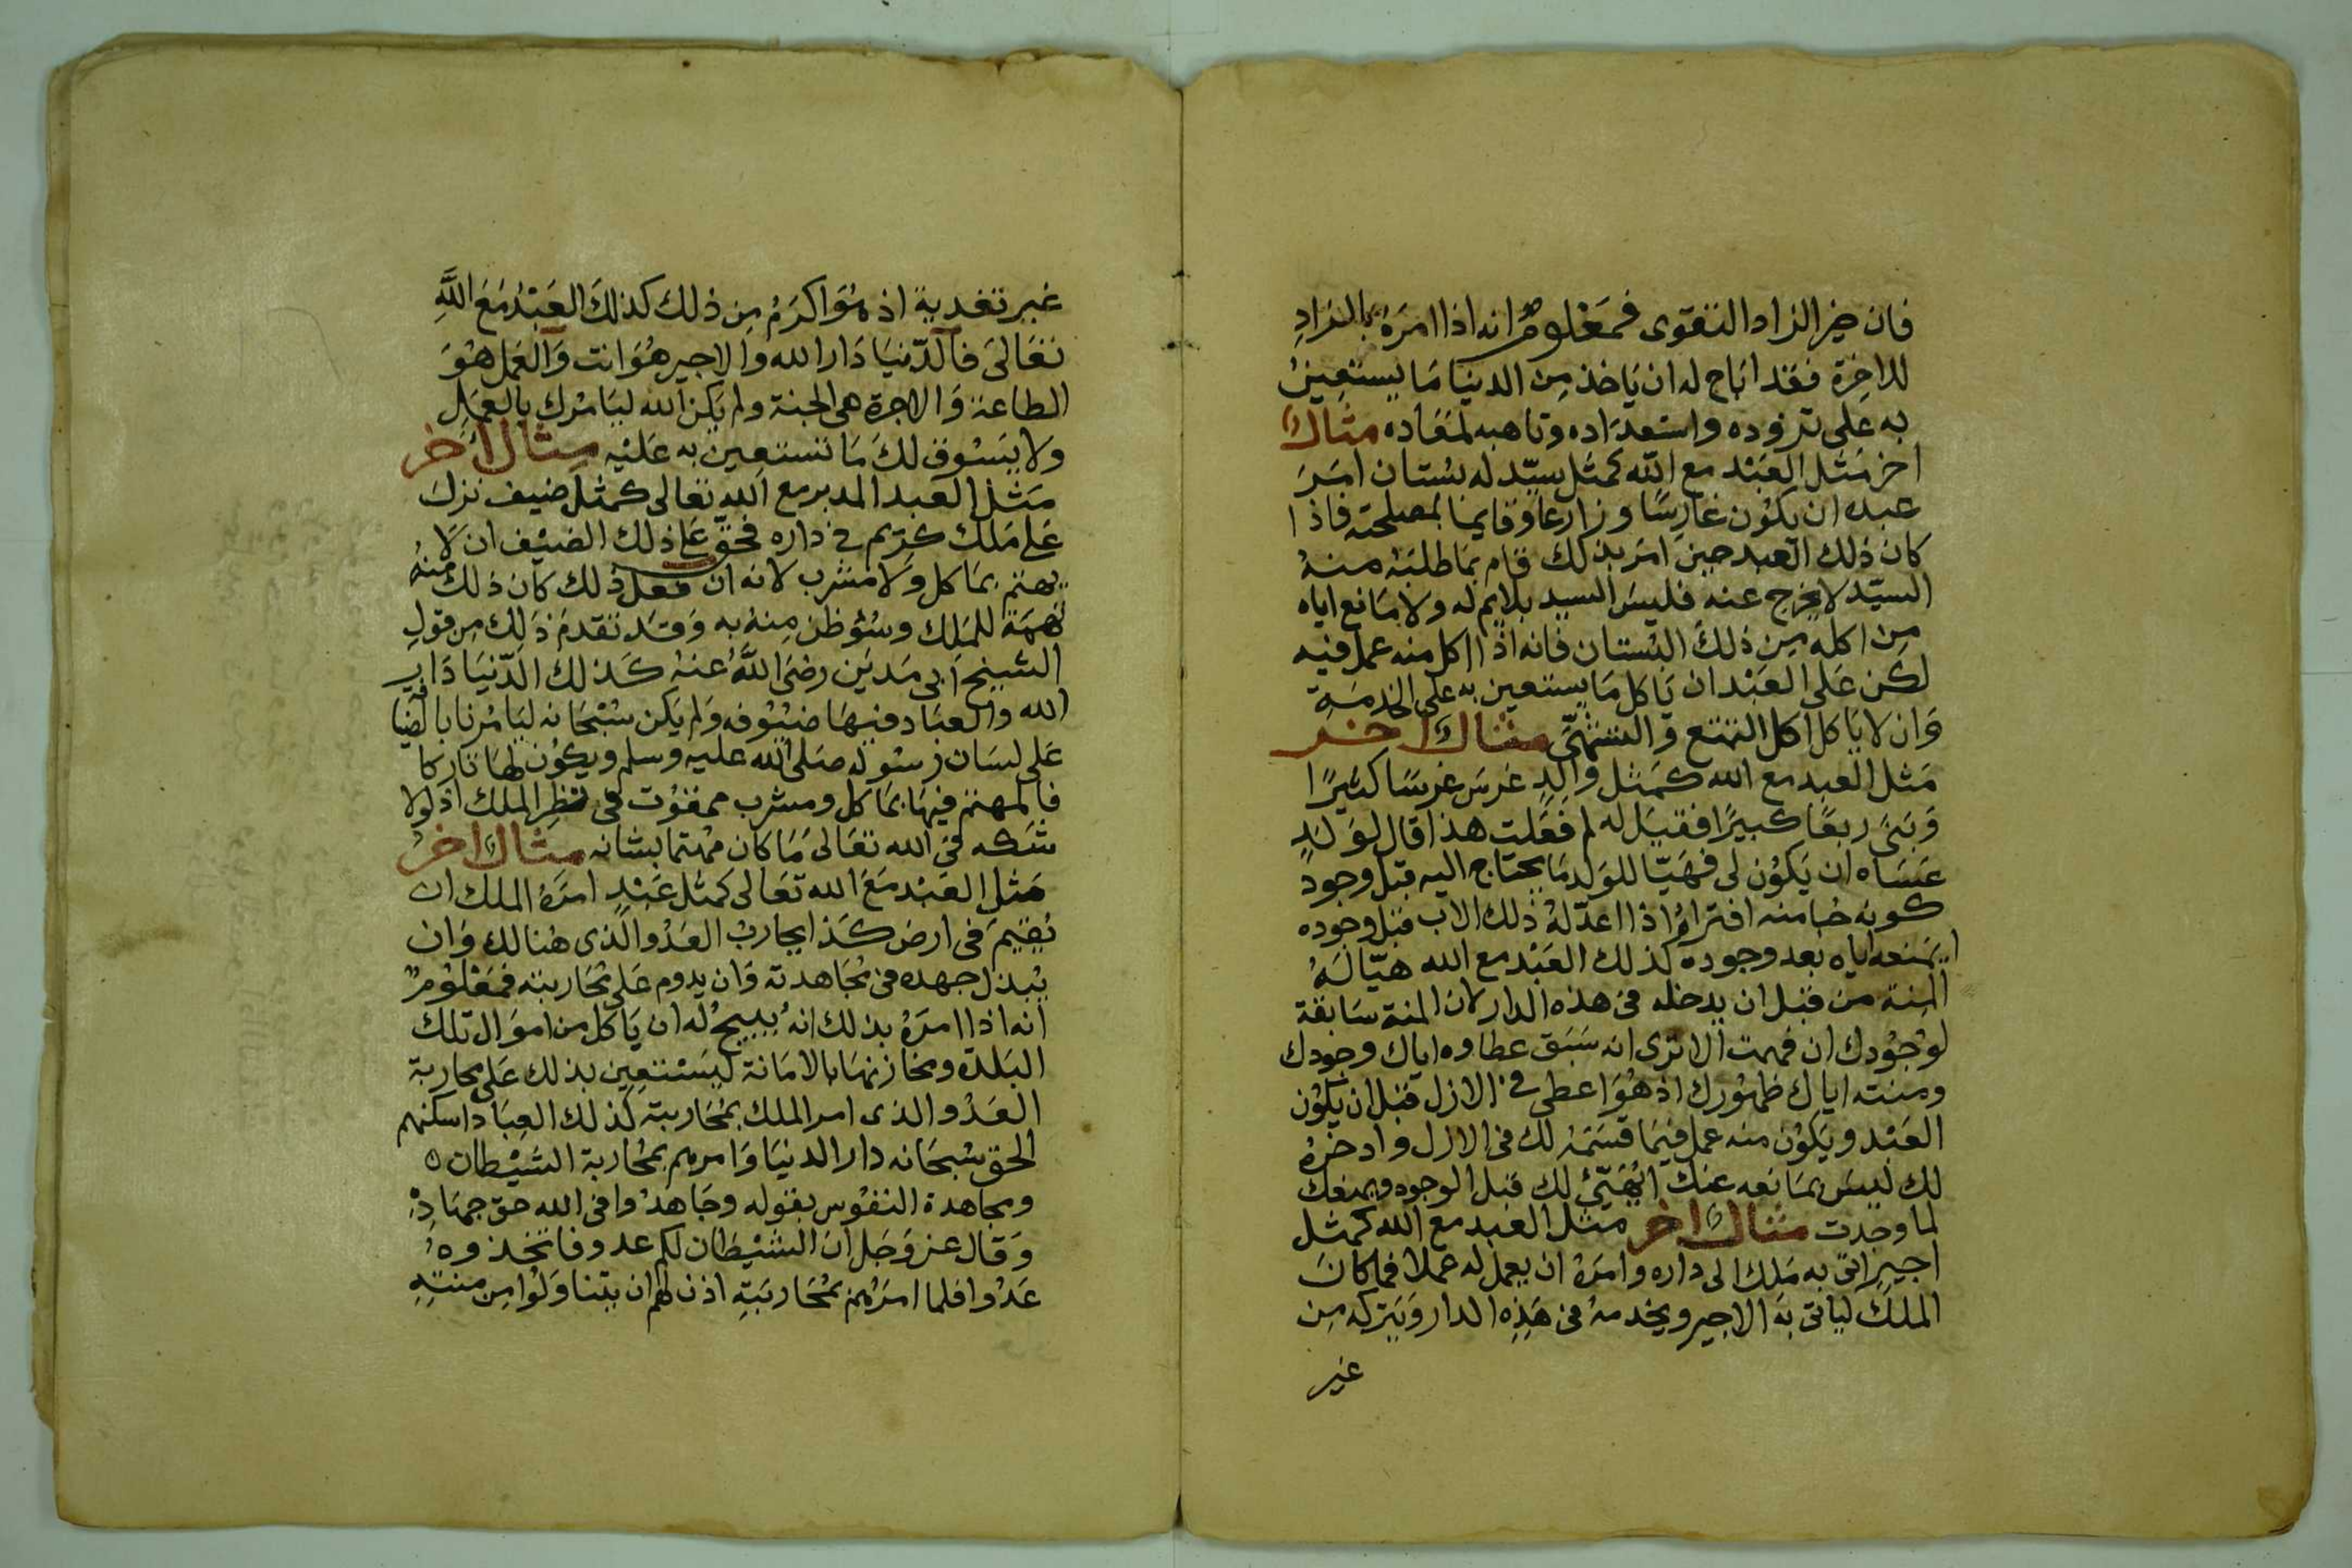 فان خير الزاد التقوى فمعلوم انه اذا امره بالتزاد
للاخرة فقد اباح له ان ياخذ من الدنيا ما يستعين
به على تزوده واستعداده وتاهبه لمعاده مثال
اخر مثل العبد مع الله كمثل سيد له بستان امر
عبده ان يكون غارسا وزارعا وقايما بمصلحته فاذا
كان ذلك العبد حين امر بذلك قام بما طلبه منه
السيد لا يخرج عنه فليس السيد بلايم له ولا مانع اياه
من اكله من ذلك البستان فانه اذا اكل منه عمل فيه
لكن على العبد ان ياكل ما يستعين به على الخدمة
وان لا ياكل اكل التمتع والتشهى مثال اخر
مثل العبد مع الله كمثل والد غرس غرسا كثيرا
وبنى ربعا كبيرا فقيل له لم فعلت هذا قال لولد
عساه ان يكون لى فهيا للولد ما يحتاج اليه قبل وجود
كونه حبا منه افتراه اذا اعد له ذلك الاب قبل وجوده
ايمنعه اياه بعد وجوده كذلك العبد مع الله هيا له
المنة من قبل ان يدخله فى هذه الدار لان المنة سابقة
لوجودك ان فهمت الا ترى انه سبق عطاوه اياك وجودك
ومنته اياك ظهورك اذ هو اعطى فى الازل قبل ان يكون
العبد ويكون منه عمل فيما قسمه لك فى الازل وادخره
لك ليس بمانعه عنك ايهيئ لك قبل الوجود ويمنعك
لما وجدت مثال اخر مثل العبد مع الله كمثل
اجير اتى به ملك الى داره وامره ان يعمل له عملا فما كان
الملك لياتى به الاجير ويخدمه فى هذه الدار ويتركه من
غير
غير تغدية اذ هو اكرم من ذلك كذلك العبد مع الله
تعالى فالدنيا دار الله والاجير هو انت والعمل هو
الطاعة والاجرة هى الجنة ولم يكن الله ليامرك بالعمل
ولا يسوق لك ما تستعين به عليه مثال اخر
مثل العبد المدبر مع الله تعالى كمثل ضيف نزل
على ملك كريم فى داره فحق على ذلك الضيف ان لا
يهتم بماكل ولا مشرب لانه ان فعل ذلك كان ذلك منه
تهمة للملك وسؤ ظن منه به وقد تقدم ذلك من قول
الشيخ ابى مدين رضى الله عنه كذلك الدنيا دار
الله والعباد فيها ضيوفه ولم يكن سبحانه ليامرنا بالضيافة
على لسان رسوله صلى الله عليه وسلم ويكون لها تاركا
فالمهتم فيها بماكل ومشرب ممقوت فى نظر الملك اذ لولا
شكه فى الله تعالى ما كان مهتما بشانه مثال اخر
مثل العبد مع الله تعالى كمثل عبد امره الملك ان
يقيم فى ارض كذا يحارب العدو الذى هنالك وان
يبذل جهده فى مجاهدته وان يدوم على محاربته فمعلوم
انه اذا امره بذلك انه يبيح له ان ياكل من اموال تلك
البلدة ومخازنها بالامانة ليستعين بذلك على محاربة
العدو الذى امر الملك بمحاربته كذلك العباد اسكنهم
الحق سبحانه دار الدنيا وامرهم بمحاربة الشيطان ه
ومجاهدة النفوس بقوله وجاهدوا فى الله حق جهاده
وقال عز وجل ان الشيطان لكم عدو فاتخذوه
عدوا فلما امرهم بمحاربته اذن لهم ان يتناولوا من منته